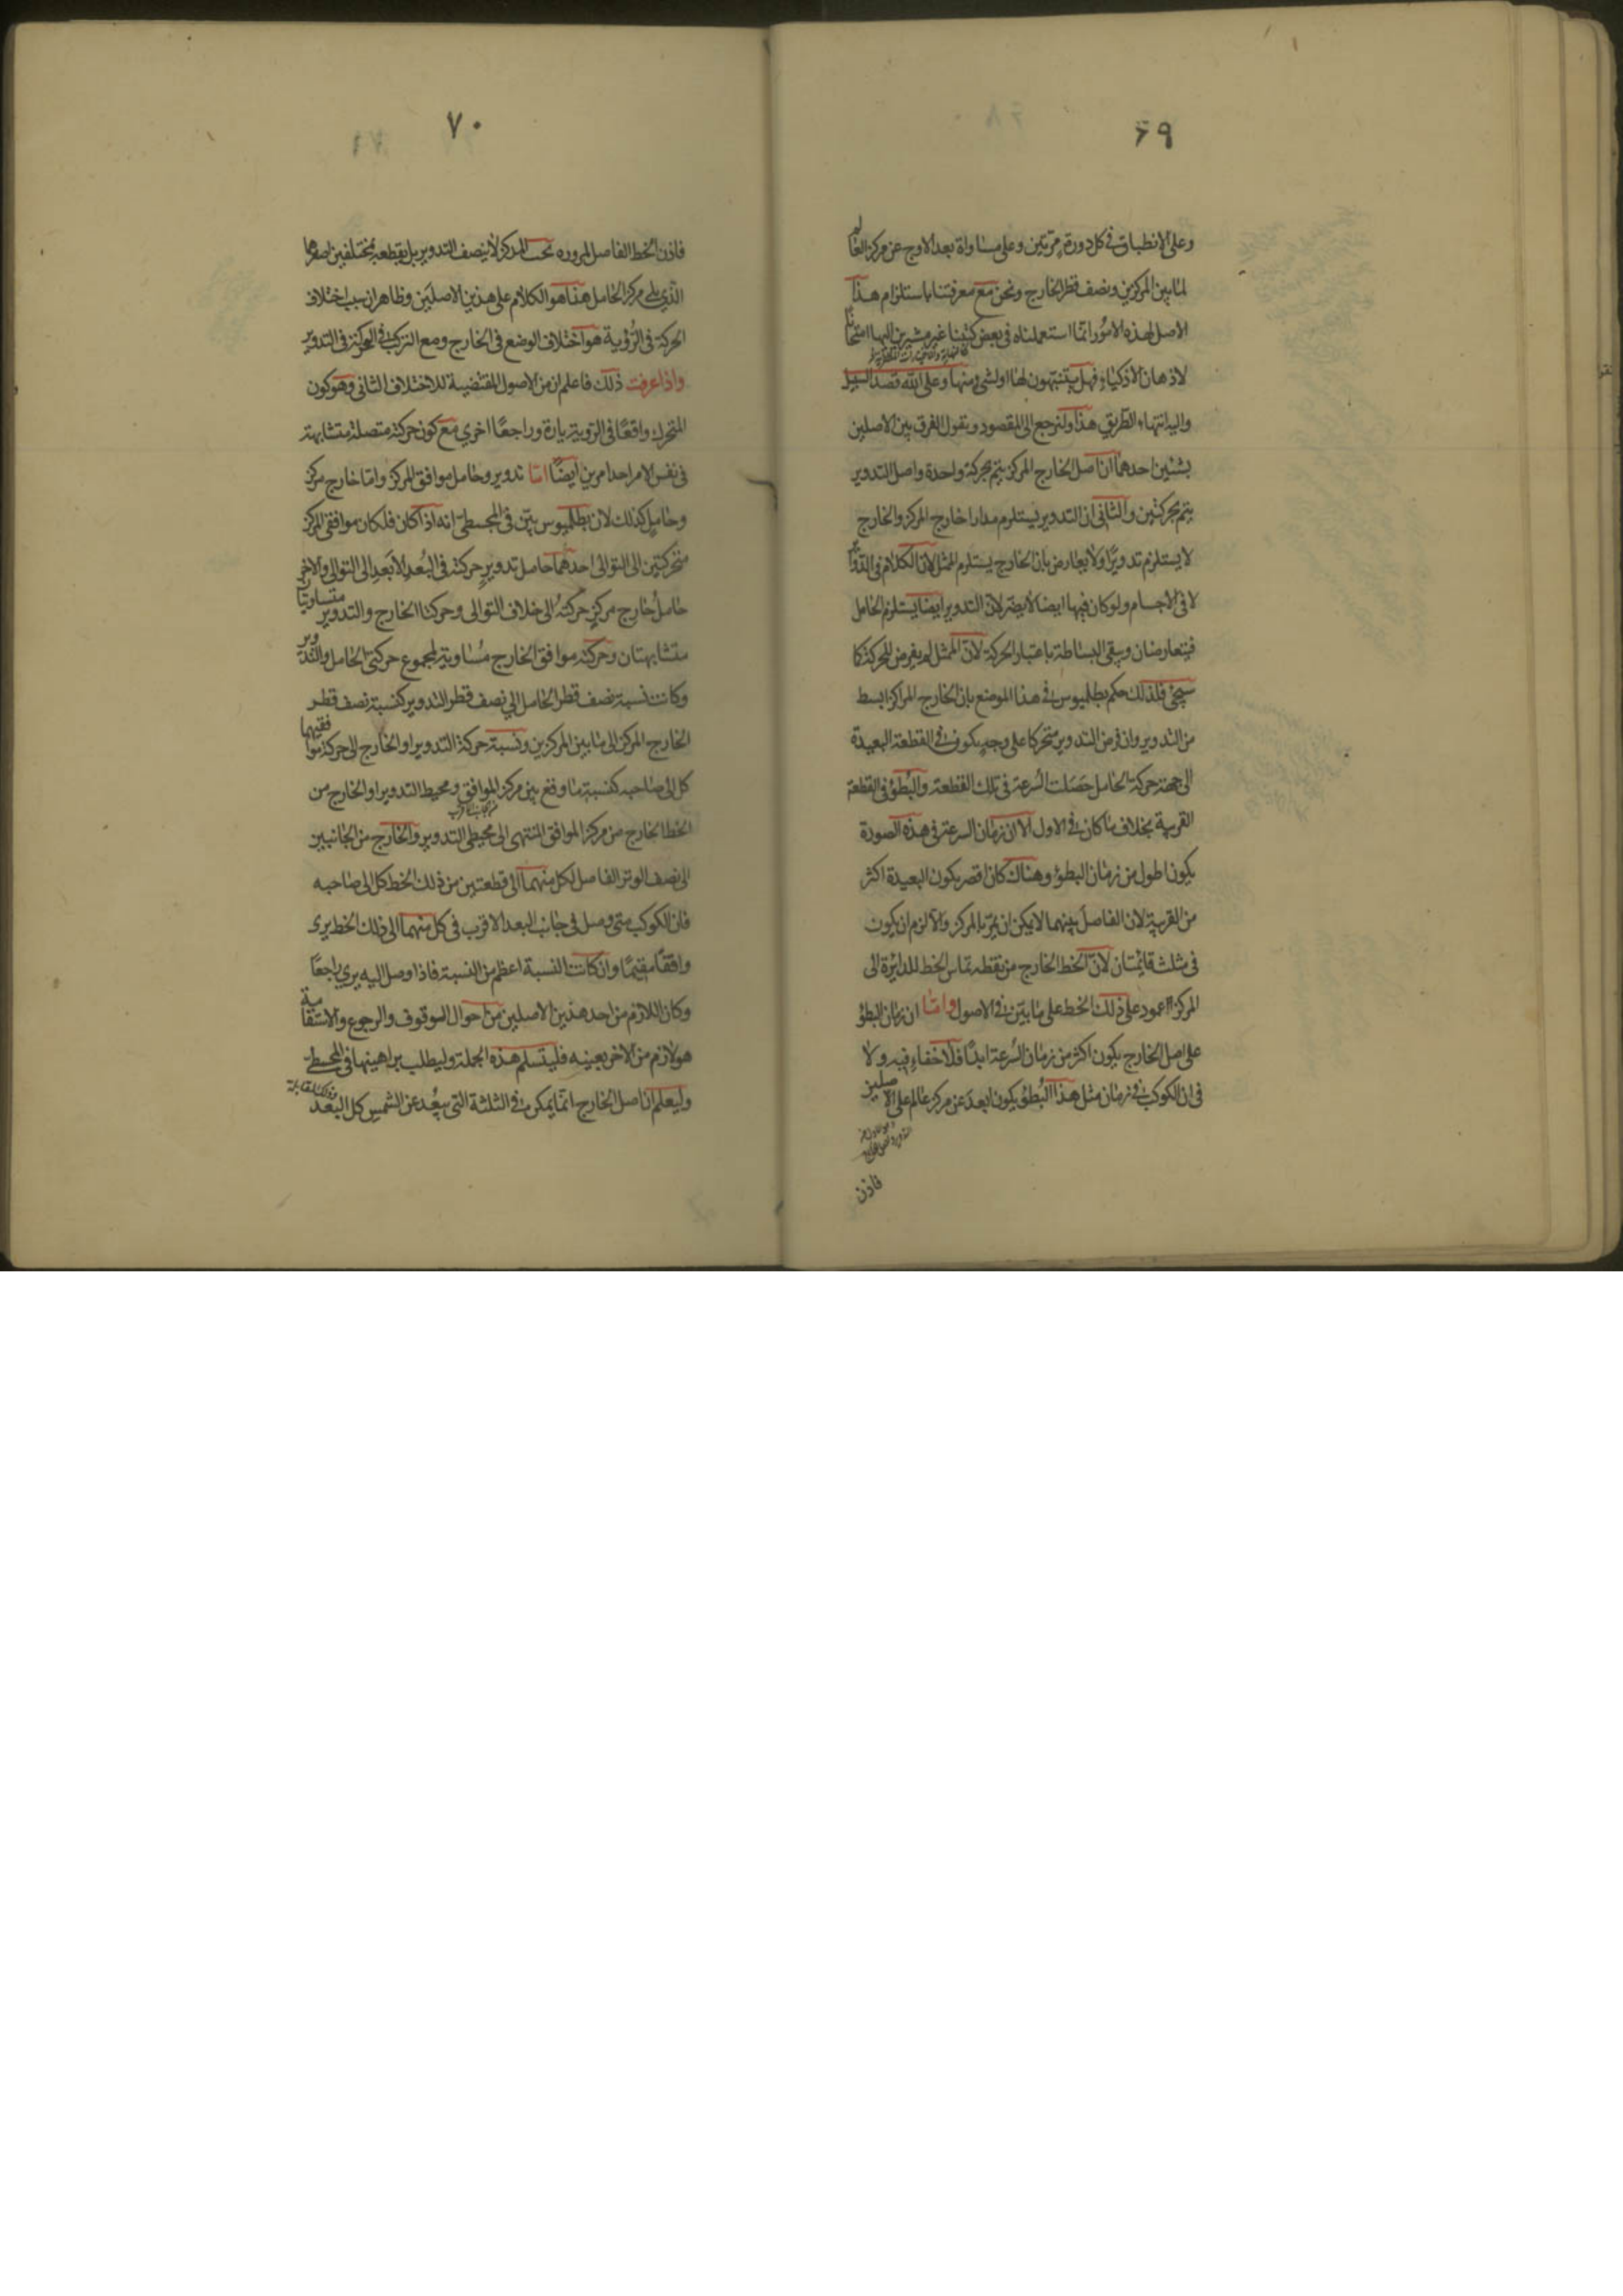 ٦٩
وعلى الانطباق في كل دورة مرتين وعلى مساواة بعد الاوج عن مركز العالم
لما بين المركزين ونصف قطر الخارج ونحن مع معرفتنا باستلزام هذا
الاصل لهذه الامور انما استعملناه في بعض كتبنا غير مشيرين اليها امتحانا
لاذهان الاذكياء فهل يتنبهون لها او لشيء منها وعلى الله قصد السبيل
واليه انتهاء الطريق هذا ولنرجع الى المقصود ونقول الفرق بين الاصلين
بشيئين احدهما ان اصل الخارج المركز يتم بحركة واحدة واصل التدوير
يتم بحركتين والثاني ان التدوير يستلزم مدارا خارج المركز والخارج
لا يستلزم تدويرا ولا يعارض بان الخارج يستلزم الممثل لان الكلام في الدوائر
لا في الاجسام ولو كان فيها ايضا لا يضر لان التدوير ايضا يستلزم الحامل
فيتعارضان ويبقى البساطة باعتبار الحركة لان الممثل لم يفرض للحركة كما
سيجئ فلذلك حكم بطلميوس في هذا الموضع بان الخارج المراكز ابسط
من التدوير وان فرض التدوير متحركا على وجه يكون في القطعة البعيدة
الى جهة حركة الحامل حصلت السرعة في تلك القطعة والبطؤ في القطعة
القريبة بخلاف ما كان في الاول الا ان زمان السرعة في هذه الصورة
يكون اطول من زمان البطؤ وهناك كان اقصر يكون البعيدة اكثر
من القريبة لان الفاصل بينهما لا يمكن ان يمر بالمركز والا لزم ان يكون
في مثلث قائمتان لان الخط الخارج من نقطة تماس الخط للدائرة الى
المركز عمود على ذلك الخط على ما بين في الاصول واما ان زمان البطؤ
على اصل الخارج يكون اكثر من زمان السرعة ابدا فلا خفاء فيه ولا
في ان الكوكب في زمان مثل هذا البطؤ يكون ابعد عن مركز عالم على الاصلين
فاذن
٧٠
فاذن الخط الفاصل لمروره تحت المركز لا ينصف التدوير بل يقطعه بمختلفين اصغرهما
الذي يلي مركز الحامل هذا هو الكلام على هذين الاصلين وظاهر ان سبب اختلاف
الحركة في الرؤية هو اختلاف الوضع في الخارج ومع التركب في الحركة في التدوير
واذا عرفت ذلك فاعلم ان من الاصول المقتضية للاختلاف الثاني وهو كون
المتحرك واقعا في الرؤية تارة وراجعا اخري مع كون حركته متصلة متشابهة
في نفس الامر احد امرين ايضا اما تدوير وحامل موافق المركز واما خارج مركز
وحامل كذلك لان بطلميوس بين في المجسطي انه اذا كان فلكان موافقي المركز
متحركتين الى التوالي احدهما حامل تدوير حركته في البعد الابعد الى التوالي والاخر
حامل خارج مركز حركته الى خلاف التوالي وحركتا الخارج والتدوير متساويتان
متشابهتان وحركة موافق الخارج مساوية لمجموع حركتي الحامل والتدوير
وكانت نسبة نصف قطر الحامل الى نصف قطر التدوير كنسبة نصف قطر
الخارج المركز الى ما بين المركزين ونسبة حركة التدوير او الخارج الى حركة موافقيهما
كل الى صاحبه كنسبة ما وقع بين مركز الموافق ومحيط التدوير او الخارج من
الخط الخارج من مركز الموافق المنتهى الى محيطي التدوير والخارج من الجانبين
الى نصف الوتر الفاصل لكل منهما الى قطعتين من ذلك الخط كل الى صاحبه
فان الكوكب متى وصل في جانب البعد الاقرب في كل منهما الى ذلك الخط يرى
واقفا مقيما وان كانت النسبة اعظم من النسبة فاذا وصل اليه يرى راجعا
وكان اللازم من احد هذين الاصلين من احوال الوقوف والرجوع والاستقامة
هو لازم من الاخر بعينه فليتسلم هذه الجملة وليطلب براهينها في المجسطي
وليعلم ان اصل الخارج انما يمكن في الثلثة التي يبعد عن الشمس كل البعد